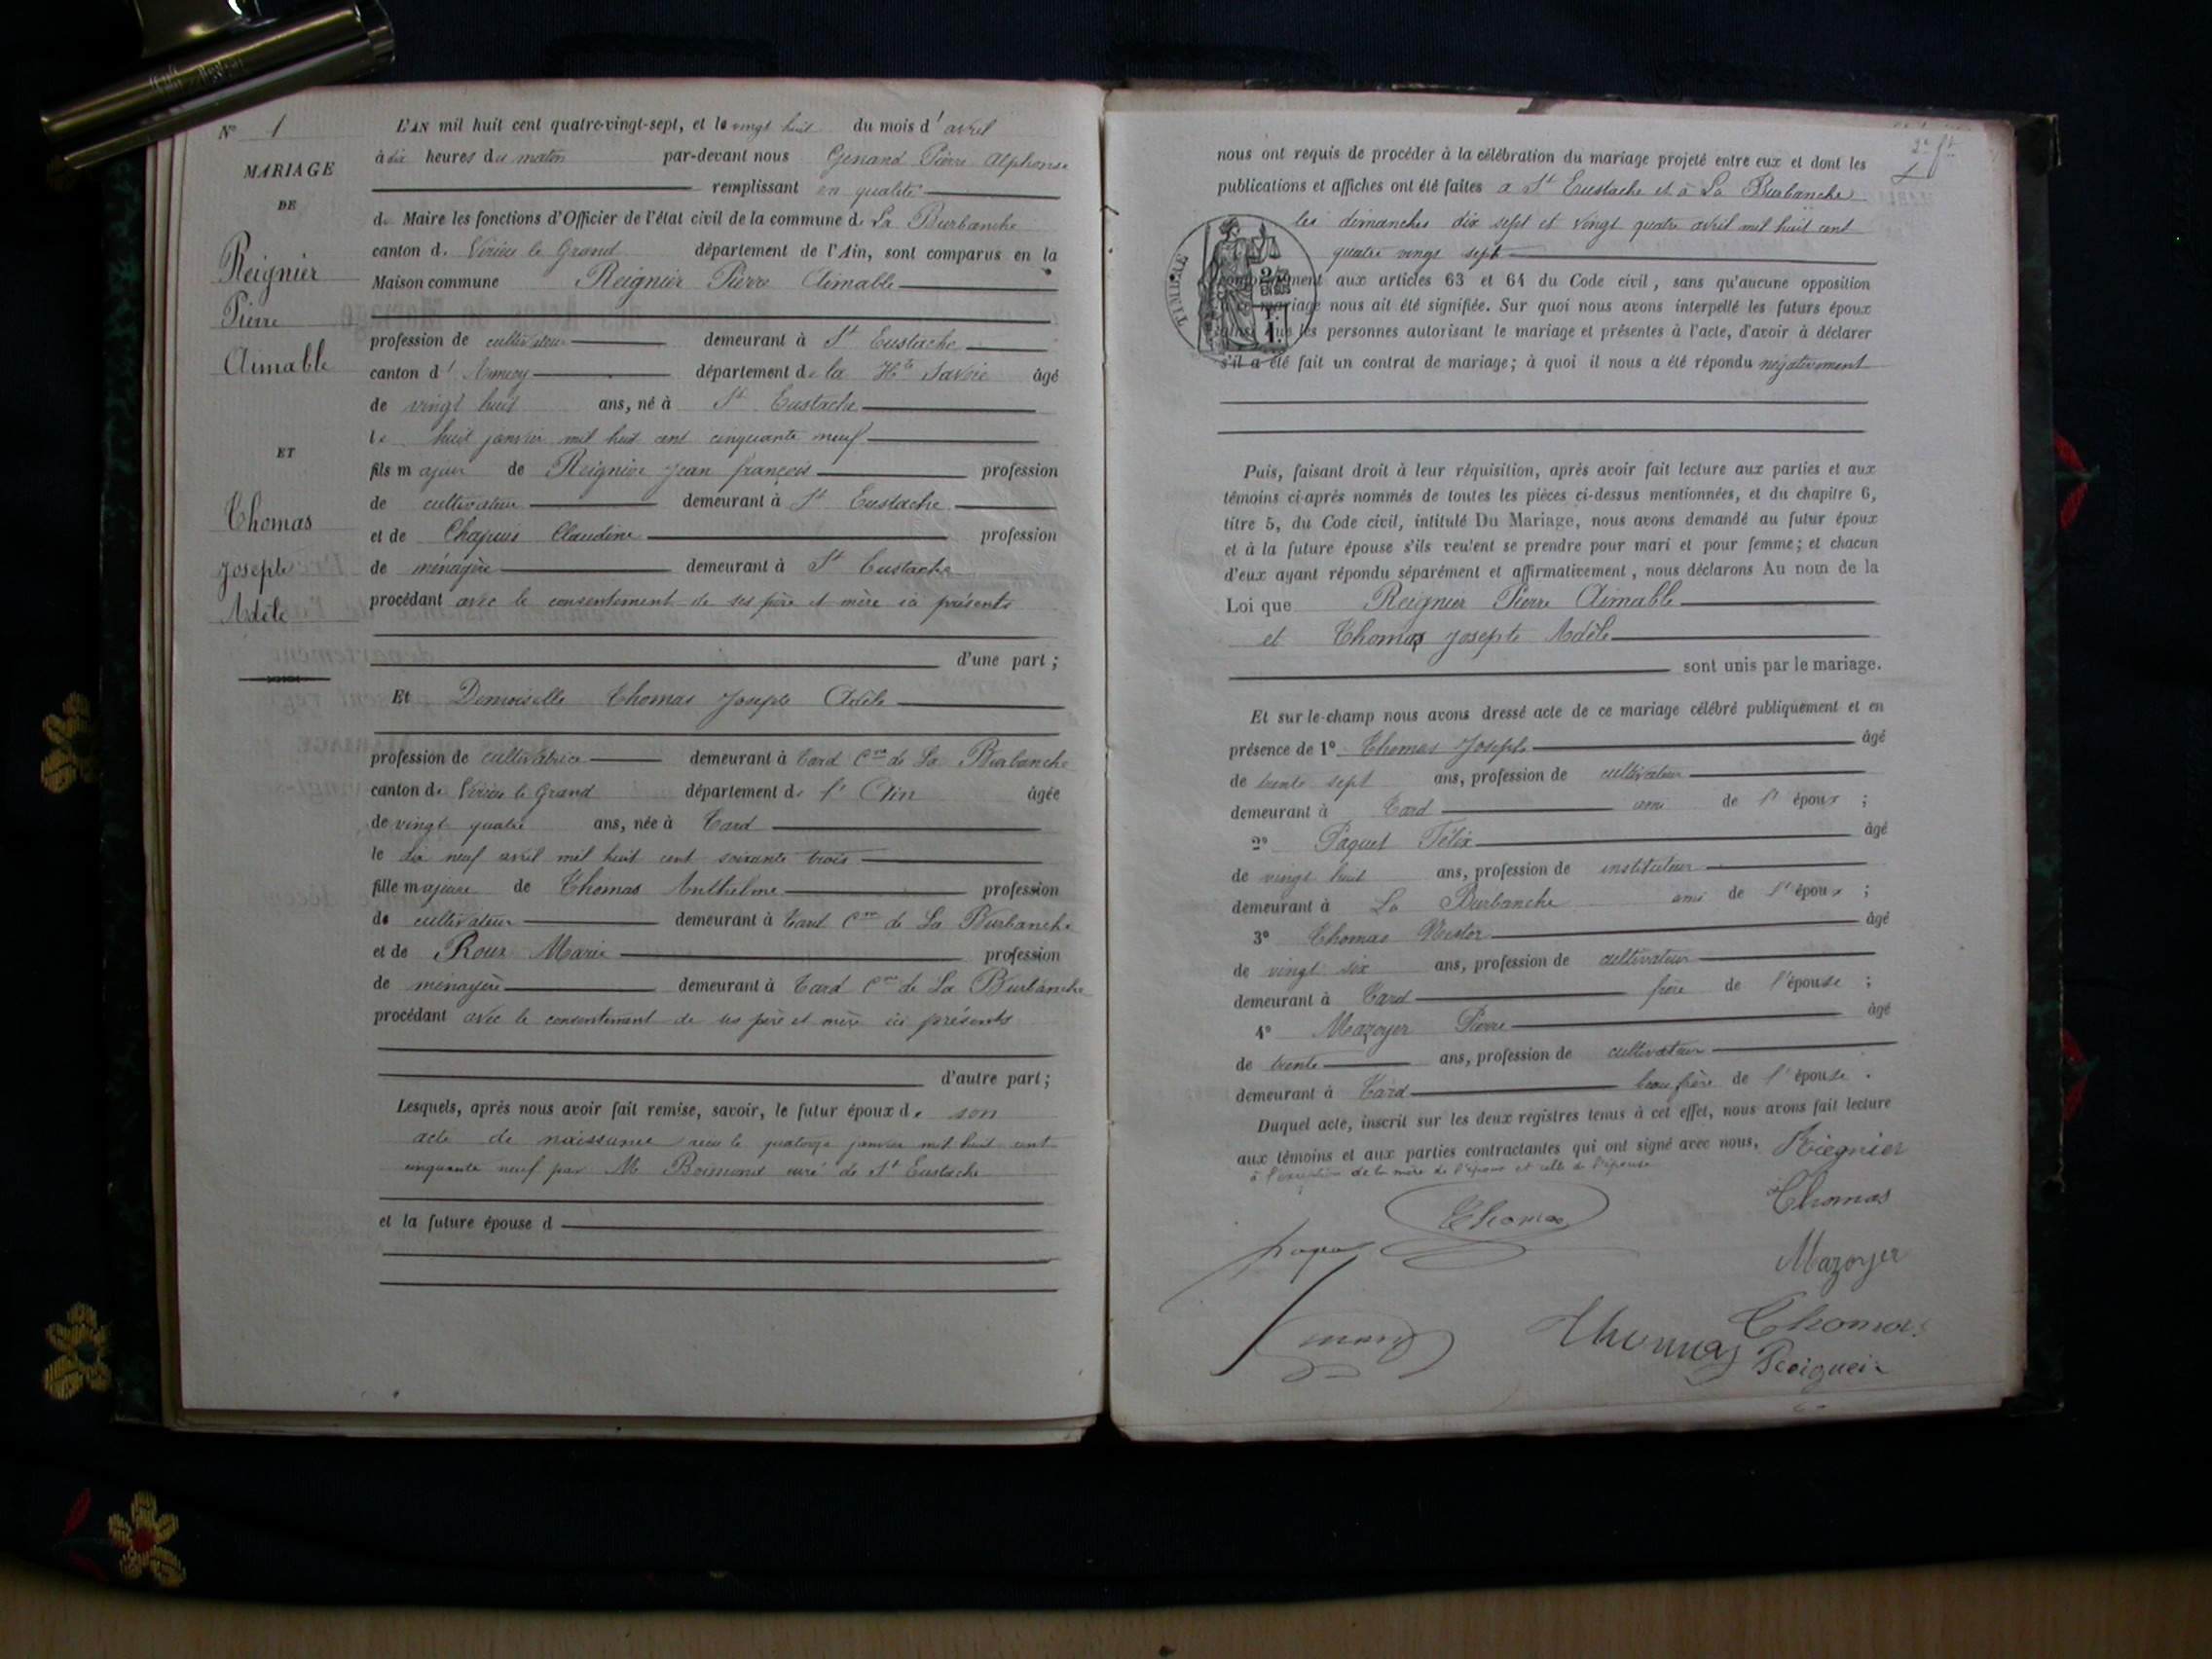 N° 1
MARIAGE
DE
Reignier
Pierre
Aimable
ET
Thomas
Josephe
Adèle
L'AN mil huit cent quatre-vingt-sept, et le vingt huit du mois d'avril
à dix heures du matin par-devant nous Genand Pierre Alphonse
remplissant en qualité
de Maire les fonctions d'Officier de l'état civil de la commune de La Burbanche
canton de Virieu le Grand département de l'Ain, sont comparus en la
Maison commune Reignier Pierre Aimable
profession de cultivateur demeurant à St Eustache
canton d'Annecy département de la Hte Savoie âgé
de vingt huit ans, né à St Eustache
le huit janvier mil huit cent cinquante neuf
fils majeur de Reignier Jean françois profession
de cultivateur demeurant à St Eustache
et de Chapuis Claudine profession
de ménagère demeurant à St Eustache
procédant avec le consentement de ses père et mère ici présents
d'une part ;
Et Demoiselle Thomas Josephe Adèle
profession de cultivatrice demeurant à Tard Cne de La Burbanche
canton de Virieu le Grand département de l'Ain âgée
de vingt quatre ans, née à Tard
le dix neuf avril mil huit cent soixante trois
fille majeure de Thomas Anthelme profession
de cultivateur demeurant à Tard Cne de La Burbanche
et de Roux Marie profession
de ménagère demeurant à Tard Cne de La Burbanche
procédant avec le consentement de ses père et mère ici présents
d'autre part ;
Lesquels, après nous avoir fait remise, savoir, le futur époux de son
acte de naissance reçu le quatorze janvier mil huit cent
cinquante neuf par M Boimond curé de St Eustache
et la future épouse d
nous ont requis de procéder à la célébration du mariage projeté entre eux et dont les
publications et affiches ont été faites a St Eustache et à La Burbanche
les dimanches dix sept et vingt quatre avril mil huit cent
quatre vingt sept
TIMBRE
conformément aux articles 63 et 64 du Code civil, sans qu'aucune opposition
à ce mariage nous ait été signifiée. Sur quoi nous avons interpellé les futurs époux
ainsi que les personnes autorisant le mariage et présentes à l'acte, d'avoir à déclarer
s'il a été fait un contrat de mariage ; à quoi il nous a été répondu négativement
Puis, faisant droit à leur réquisition, après avoir fait lecture aux parties et aux
témoins ci-après nommés de toutes les pièces ci-dessus mentionnées, et du chapitre 6,
titre 5, du Code civil, intitulé Du Mariage, nous avons demandé au futur époux
et à la future épouse s'ils veulent se prendre pour mari et pour femme ; et chacun
d'eux ayant répondu séparément et affirmativement, nous déclarons Au nom de la
Loi que Reignier Pierre Aimable
et Thomas Josephe Adèle
sont unis par le mariage.
Et sur-le-champ nous avons dressé acte de ce mariage célébré publiquement et en
présence de 1° Thomas Joseph âgé
de trente sept ans, profession de cultivateur
demeurant à Tard ami de l'époux ;
2° Paquet Félix âgé
de vingt huit ans, profession de instituteur
demeurant à La Burbanche ami de l'époux ;
3° Thomas Nestor âgé
de vingt six ans, profession de cultivateur
demeurant à Tard frère de l'épouse ;
4° Mazoyer Pierre âgé
de trente ans, profession de cultivateur
demeurant à Tard beau frère de l'épouse .
Duquel acte, inscrit sur les deux registres tenus à cet effet, nous avons fait lecture
aux témoins et aux parties contractantes qui ont signé avec nous, Riegnier
à l'exception de la mère de l'époux et celle de l'épouse
Thomas
Thomas
Mazoyer
Thomas
Thomas